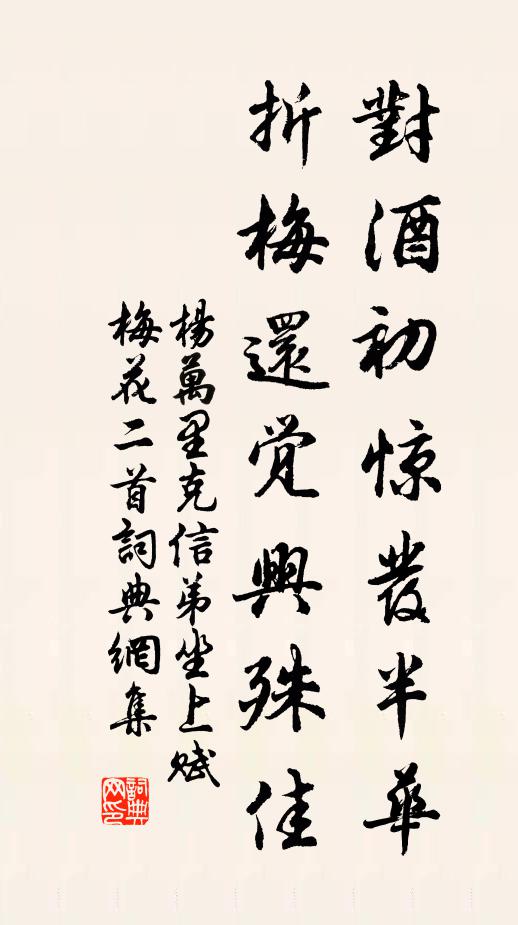 對酒初惊發半華
折梅還覚興殊佳
楊萬里克信弟坐上賦
梅花二首詞典網集
詞典
网印